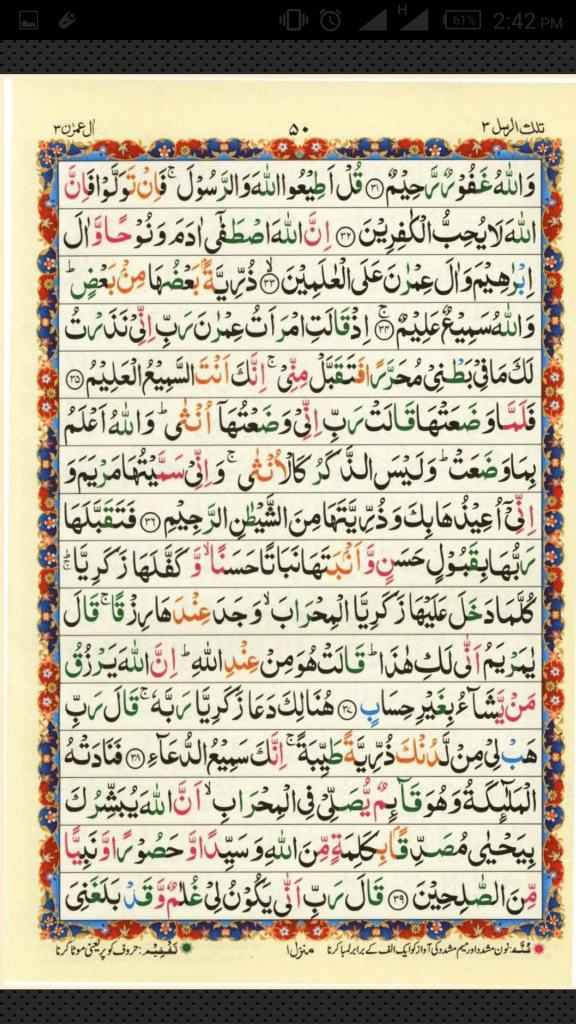 H 61% 2:42 PM
تلك الرسل ٣ ٥٠ اٰل عمرٰن ٣
وَاللّٰهُ غَفُوْرٌ رَّحِيْمٌ ﴿٣١﴾ قُلْ اَطِيْعُوا اللّٰهَ وَالرَّسُوْلَ ۚ فَاِنْ تَوَلَّوْا فَاِنَّ
اللّٰهَ لَا يُحِبُّ الْكٰفِرِيْنَ ﴿٣٢﴾ اِنَّ اللّٰهَ اصْطَفٰٓى اٰدَمَ وَنُوْحًا وَّاٰلَ
اِبْرٰهِيْمَ وَاٰلَ عِمْرٰنَ عَلَى الْعٰلَمِيْنَ ۙ﴿٣٣﴾ ذُرِّيَّةًۢ بَعْضُهَا مِنْۢ بَعْضٍ ؕ
وَاللّٰهُ سَمِيْعٌ عَلِيْمٌ ۚ﴿٣٤﴾ اِذْ قَالَتِ امْرَاَتُ عِمْرٰنَ رَبِّ اِنِّىْ نَذَرْتُ
لَكَ مَا فِىْ بَطْنِىْ مُحَرَّرًا فَتَقَبَّلْ مِنِّىْ ۚ اِنَّكَ اَنْتَ السَّمِيْعُ الْعَلِيْمُ ﴿٣٥﴾
فَلَمَّا وَضَعَتْهَا قَالَتْ رَبِّ اِنِّىْ وَضَعْتُهَاۤ اُنْثٰى ؕ وَاللّٰهُ اَعْلَمُ
بِمَا وَضَعَتْ ؕ وَلَيْسَ الذَّكَرُ كَالْاُنْثٰى ۚ وَاِنِّىْ سَمَّيْتُهَا مَرْيَمَ وَ
اِنِّىْۤ اُعِيْذُهَا بِكَ وَذُرِّيَّتَهَا مِنَ الشَّيْطٰنِ الرَّجِيْمِ ﴿٣٦﴾ فَتَقَبَّلَهَا
رَبُّهَا بِقَبُوْلٍ حَسَنٍ وَّاَنْۢبَتَهَا نَبَاتًا حَسَنًا ۙ وَّكَفَّلَهَا زَكَرِيَّا ؕۚ
كُلَّمَا دَخَلَ عَلَيْهَا زَكَرِيَّا الْمِحْرَابَ ۙ وَجَدَ عِنْدَهَا رِزْقًا ۚ قَالَ
يٰمَرْيَمُ اَنّٰى لَكِ هٰذَا ؕ قَالَتْ هُوَ مِنْ عِنْدِ اللّٰهِ ؕ اِنَّ اللّٰهَ يَرْزُقُ
مَنْ يَّشَآءُ بِغَيْرِ حِسَابٍ ﴿٣٧﴾ هُنَالِكَ دَعَا زَكَرِيَّا رَبَّهٗ ۚ قَالَ رَبِّ
هَبْ لِىْ مِنْ لَّدُنْكَ ذُرِّيَّةً طَيِّبَةً ۚ اِنَّكَ سَمِيْعُ الدُّعَآءِ ﴿٣٨﴾ فَنَادَتْهُ
الْمَلٰٓئِكَةُ وَهُوَ قَآئِمٌ يُّصَلِّىْ فِى الْمِحْرَابِ ۙ اَنَّ اللّٰهَ يُبَشِّرُكَ
بِيَحْيٰى مُصَدِّقًۢا بِكَلِمَةٍ مِّنَ اللّٰهِ وَسَيِّدًا وَّحَصُوْرًا وَّنَبِيًّا
مِّنَ الصّٰلِحِيْنَ ﴿٣٩﴾ قَالَ رَبِّ اَنّٰى يَكُوْنُ لِىْ غُلٰمٌ وَّقَدْ بَلَغَنِىَ
غُنَّه: نون مشدد اور میم مشدد کی آواز کو ایک الف کے برابر لمبا کرنا منزل ١ تَفْخِيْم: حروف کو پُر یعنی موٹا کرنا